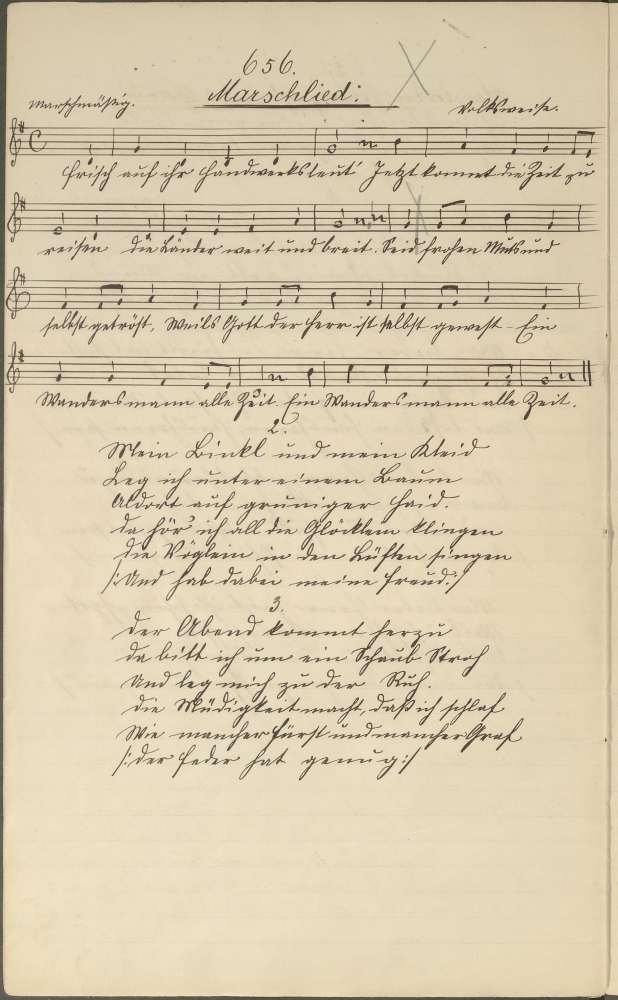 656.
Marschlied:
Marschmäßig.
Volksweise.
Frisch auf ihr Handwerksleut' Jetzt kommt die Zeit zu
reisen die Länder weit und breit. Seid frohen Muts und
selbst getröst, Weils Gott der Herr ist selbst gewest - Ein
Wandersmann alle Zeit. Ein Wandersmann alle Zeit.
2.
Mein Binkl und mein Kleid
Leg ich unter einem Baum
Aldort auf gruniger Haid.
da hör' ich all die Glöcklein klingen
die Vöglein in den Lüften singen
/:Und hab dabei meine Freud:/
3.
Der Abend kommt herzu
da bitt ich um ein Schaub Stroh
Und leg mich zu der Ruh.
die Müdigkeit macht, daß ich schlaf
Wie mancher Fürst und mancher Graf
/:der Feder hat genug:/